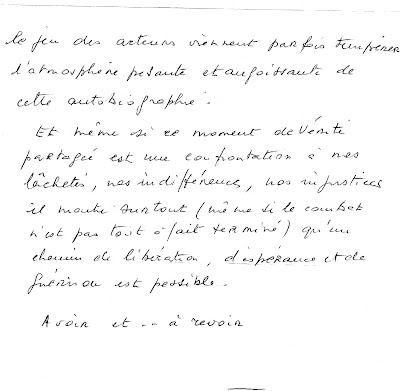 le jeu des acteurs viennent parfois tempérer
l'atmosphère pesante et angoissante de
cette autobiographie.
Et même si ce moment de Vérité
partagée est une confrontation à nos
lâchetés, nos indifférences, nos injustices
il montre surtout (même si le combat
n'est pas tout à fait terminé) qu'un
chemin de libération, d'espérance et de
guérison est possible.
A voir et -- à revoir